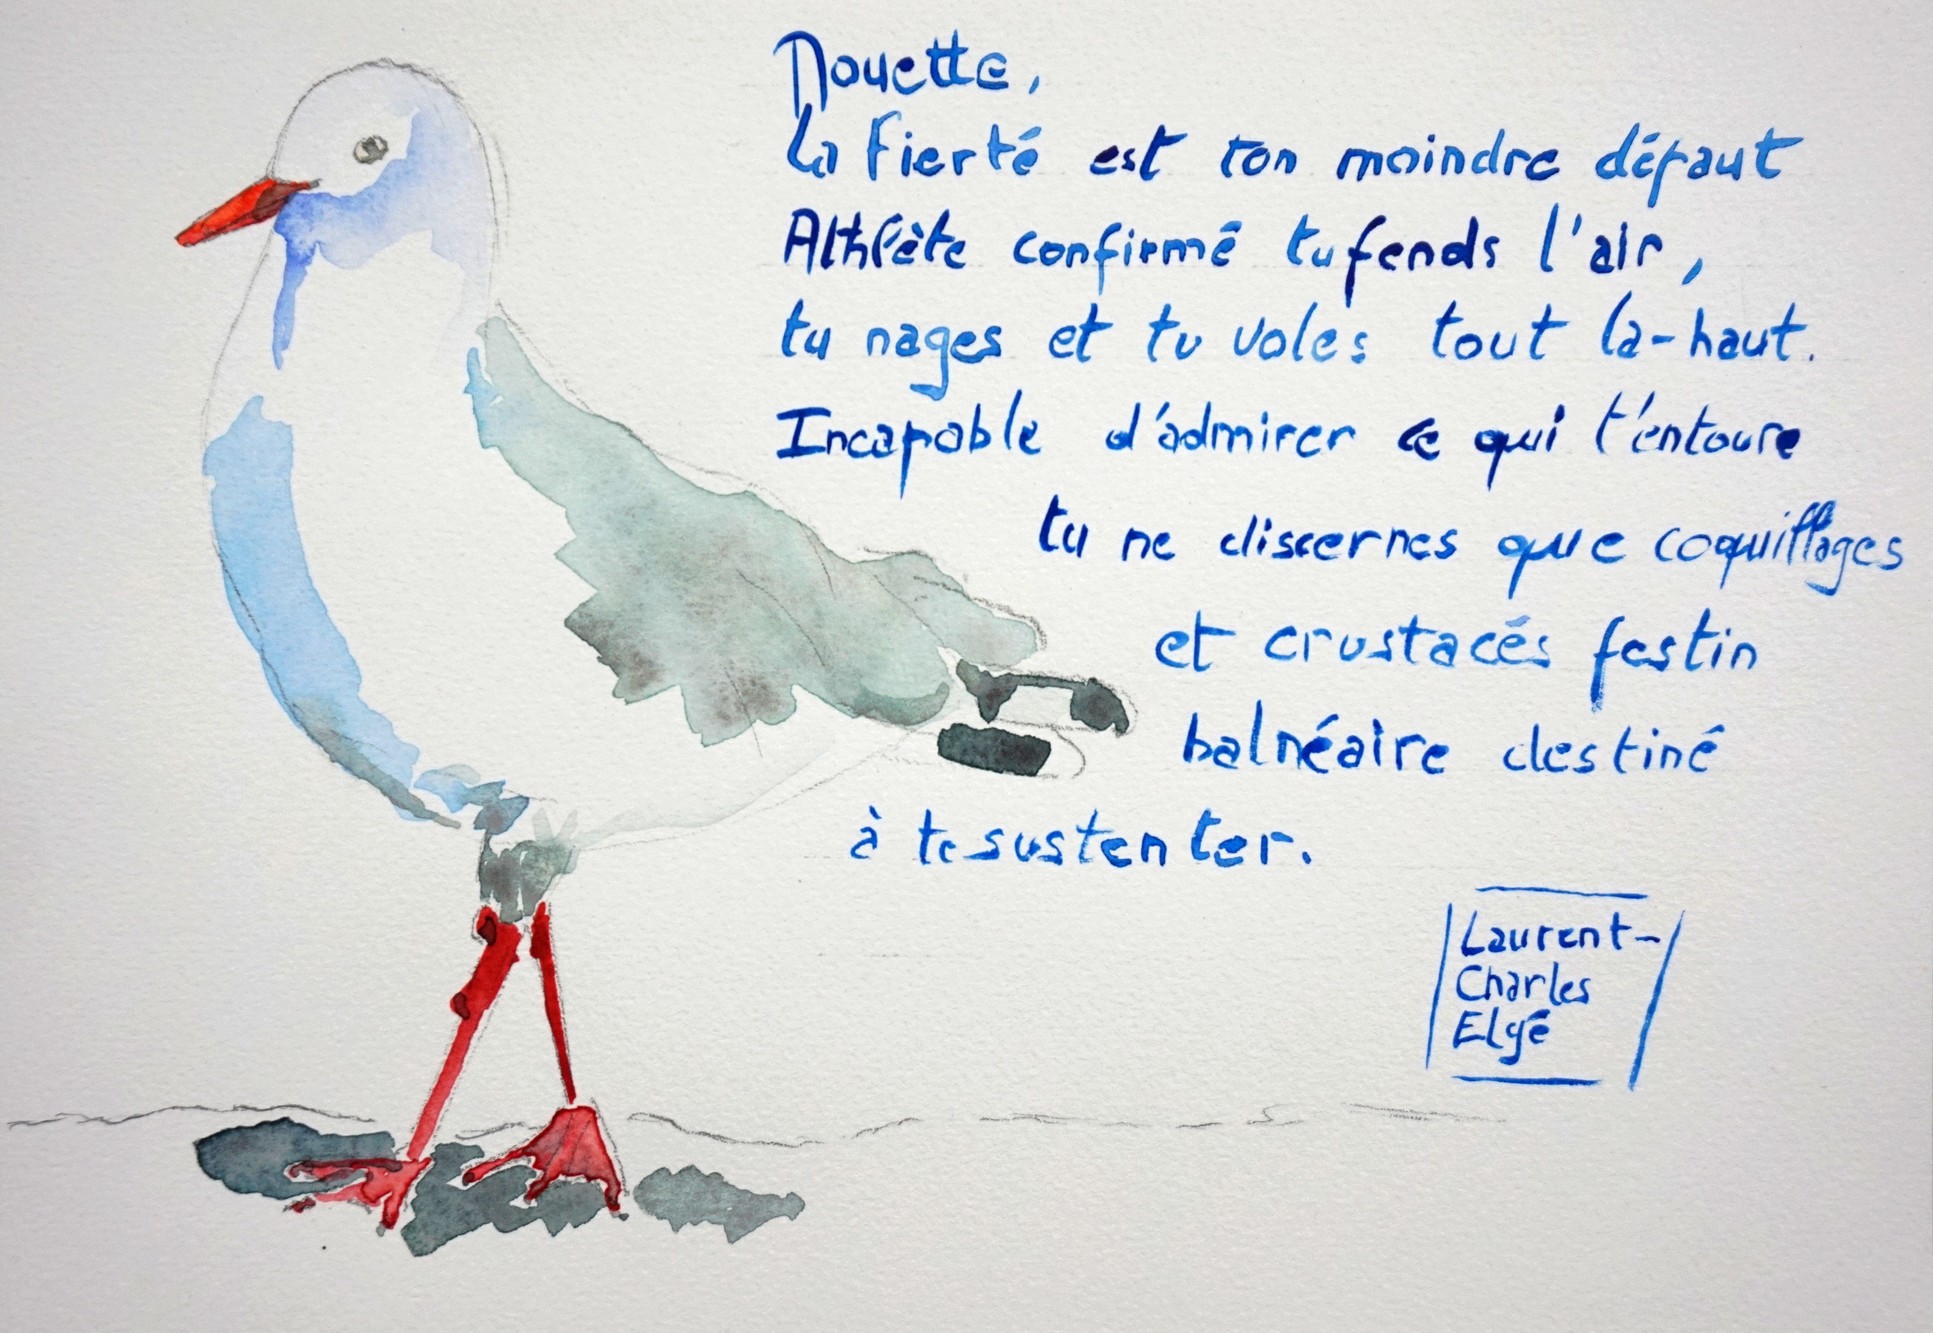 Mouette,
la fierté est ton moindre défaut
Athlète confirmé tu fends l'air,
tu nages et tu voles tout là-haut.
Incapable d'admirer ce qui t'entoure
tu ne discernes que coquillages
et crustacés festin
balnéaire destiné
à te sustenter.
Laurent-
Charles
Elgé